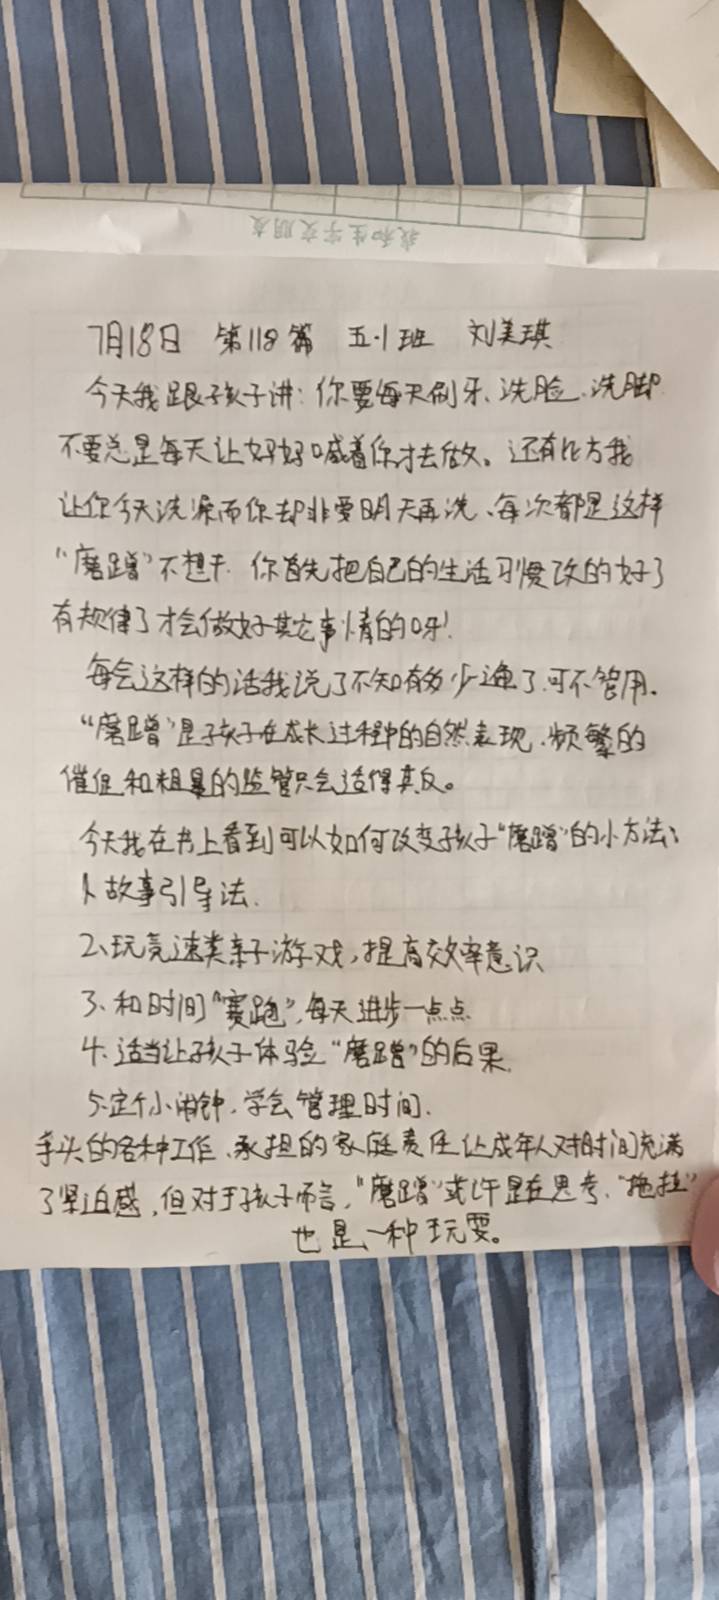 我和生字交朋友
7月18日 第118篇 五·1班 刘美琪
今天我跟孩子讲：你要每天刷牙、洗脸、洗脚
不要总是每天让妈妈喊着你才去做。还有比方我
让你今天洗澡而你却非要明天再洗、每次都是这样
“磨蹭”不想干.你首先把自己的生活习惯改的好了
有规律了才会做好其它事情的呀！
每会这样的话我说了不知有多少遍了.可不管用.
“磨蹭”是孩子在成长过程中的自然表现、频繁的
催促和粗暴的监管只会适得其反。
今天我在书上看到可以如何改变孩子“磨蹭”的小方法：
1、故事引导法.
2、玩竞速类亲子游戏，提高效率意识
3、和时间“赛跑”，每天进步一点点
4、适当让孩子体验“磨蹭”的后果.
5、定个小闹钟，学会管理时间.
手头的各种工作、承担的家庭责任让成年人对时间充满
了紧迫感，但对于孩子而言，“磨蹭”或许是在思考、“拖拉”
也是一种玩耍。